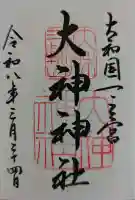 大和国一之宮
大神神社
令和八年二月二十四日